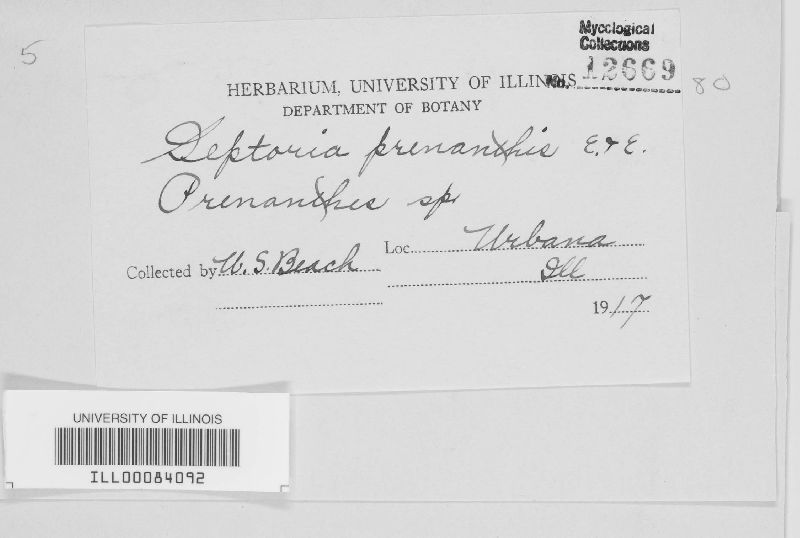 5
Mycological
Collections
HERBARIUM, UNIVERSITY OF ILLINOIS No. 12669 80
DEPARTMENT OF BOTANY
Septoria prenanthis E. & E.
Prenanthes sp
Loc. Urbana
Collected by W. S. Beach
Ill
1917
UNIVERSITY OF ILLINOIS
ILL00084092